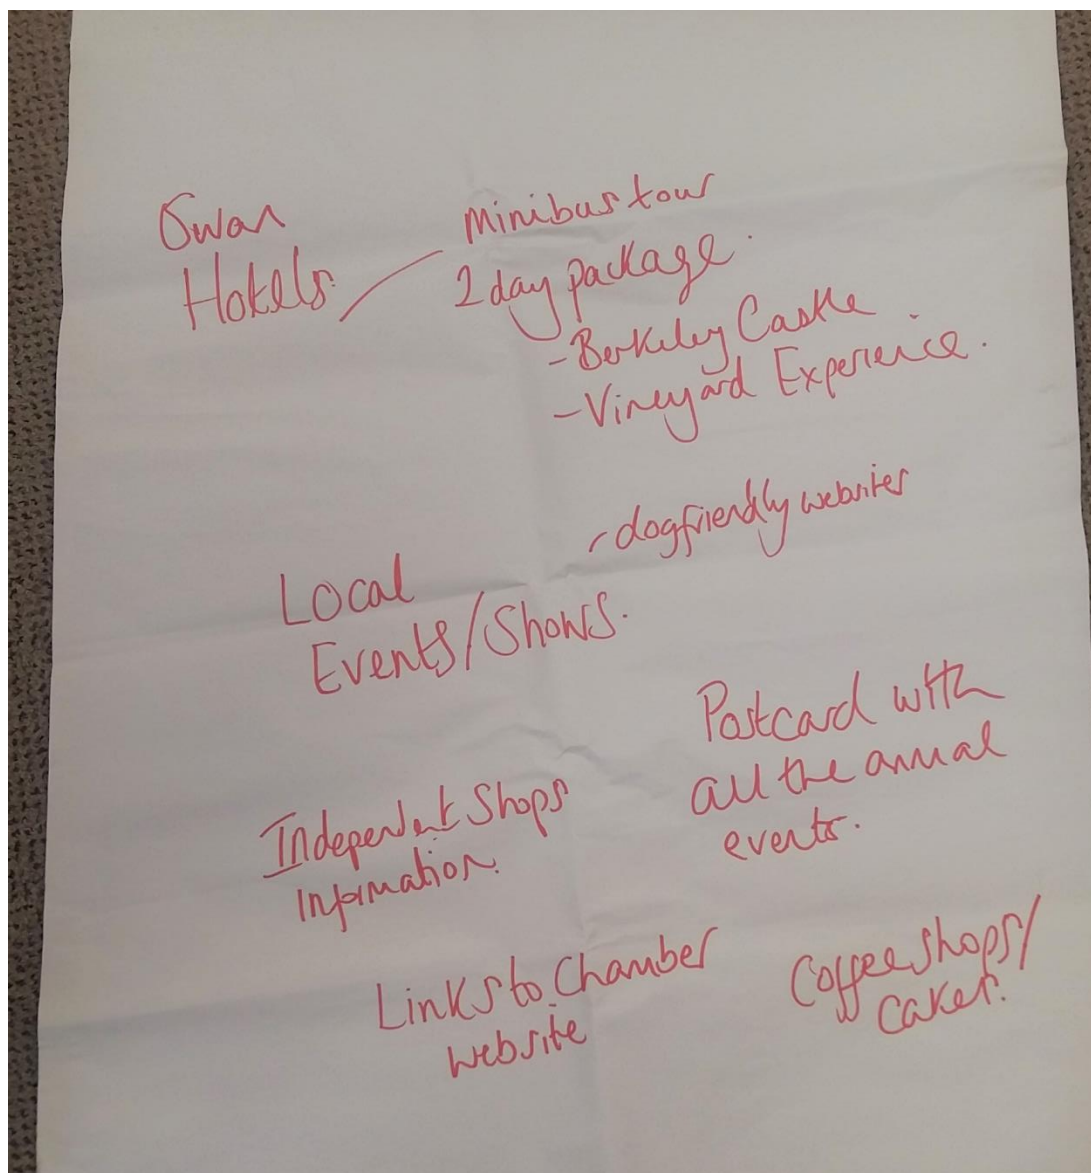 Swan
Hotels.
Minibus tour
2 day package.
- Berkeley Castle
- Vineyard Experience.
- dogfriendly websites
Local
Events/Shows.
Postcard with
all the annual
events.
Independent Shops
Information.
Links to Chamber
website
Coffee shops/
cakes.